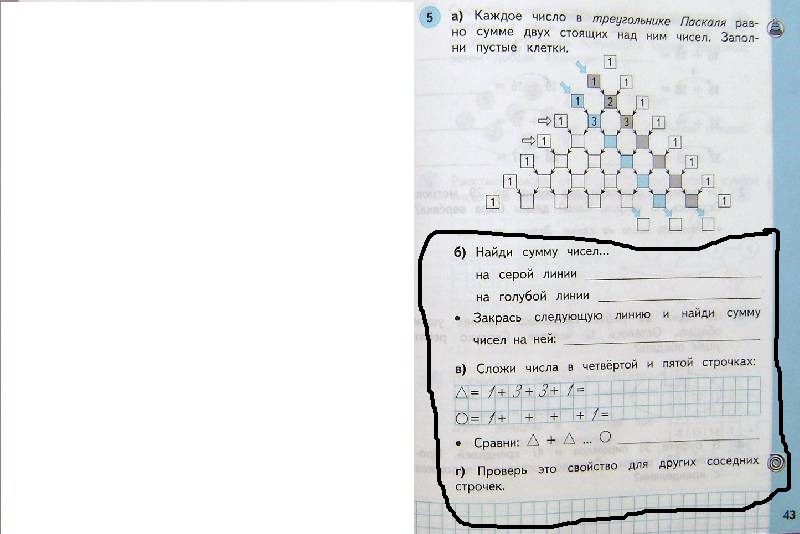 5 а) Каждое число в треугольнике Паскаля рав-
но сумме двух стоящих над ним чисел. Запол-
ни пустые клетки.
1
1 1
1 2 1
1 3 3 1
1 1
1 1
1 1
1 1
б) Найди сумму чисел...
на серой линии
на голубой линии
• Закрась следующую линию и найди сумму
чисел на ней:
в) Сложи числа в четвёртой и пятой строчках:
△ = 1 + 3 + 3 + 1 =
○ = 1 + + + + 1 =
• Сравни: △ + △ ... ○
г) Проверь это свойство для других соседних
строчек.
43